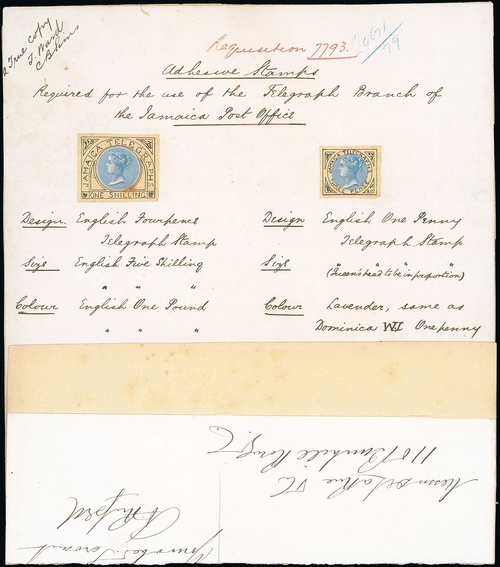 a True copy
J. Ward
Requisition 7793.
6671/79
Adhesive Stamps
Required for the use of the Telegraph Branch of
the Jamaica Post Office
JAMAICA TELEGRAPHS
ONE SHILLING
JAMAICA TELEGRAPHS
Design. English Fourpence
Telegraph Stamp
Size English Five Shilling
" " "
Colour English One Pound
" " "
Design English One Penny
Telegraph Stamp
Size " " "
(Queen's head to be in proportion)
Colour Lavender, same as
Dominica W.I One penny
110 Bunhill Row